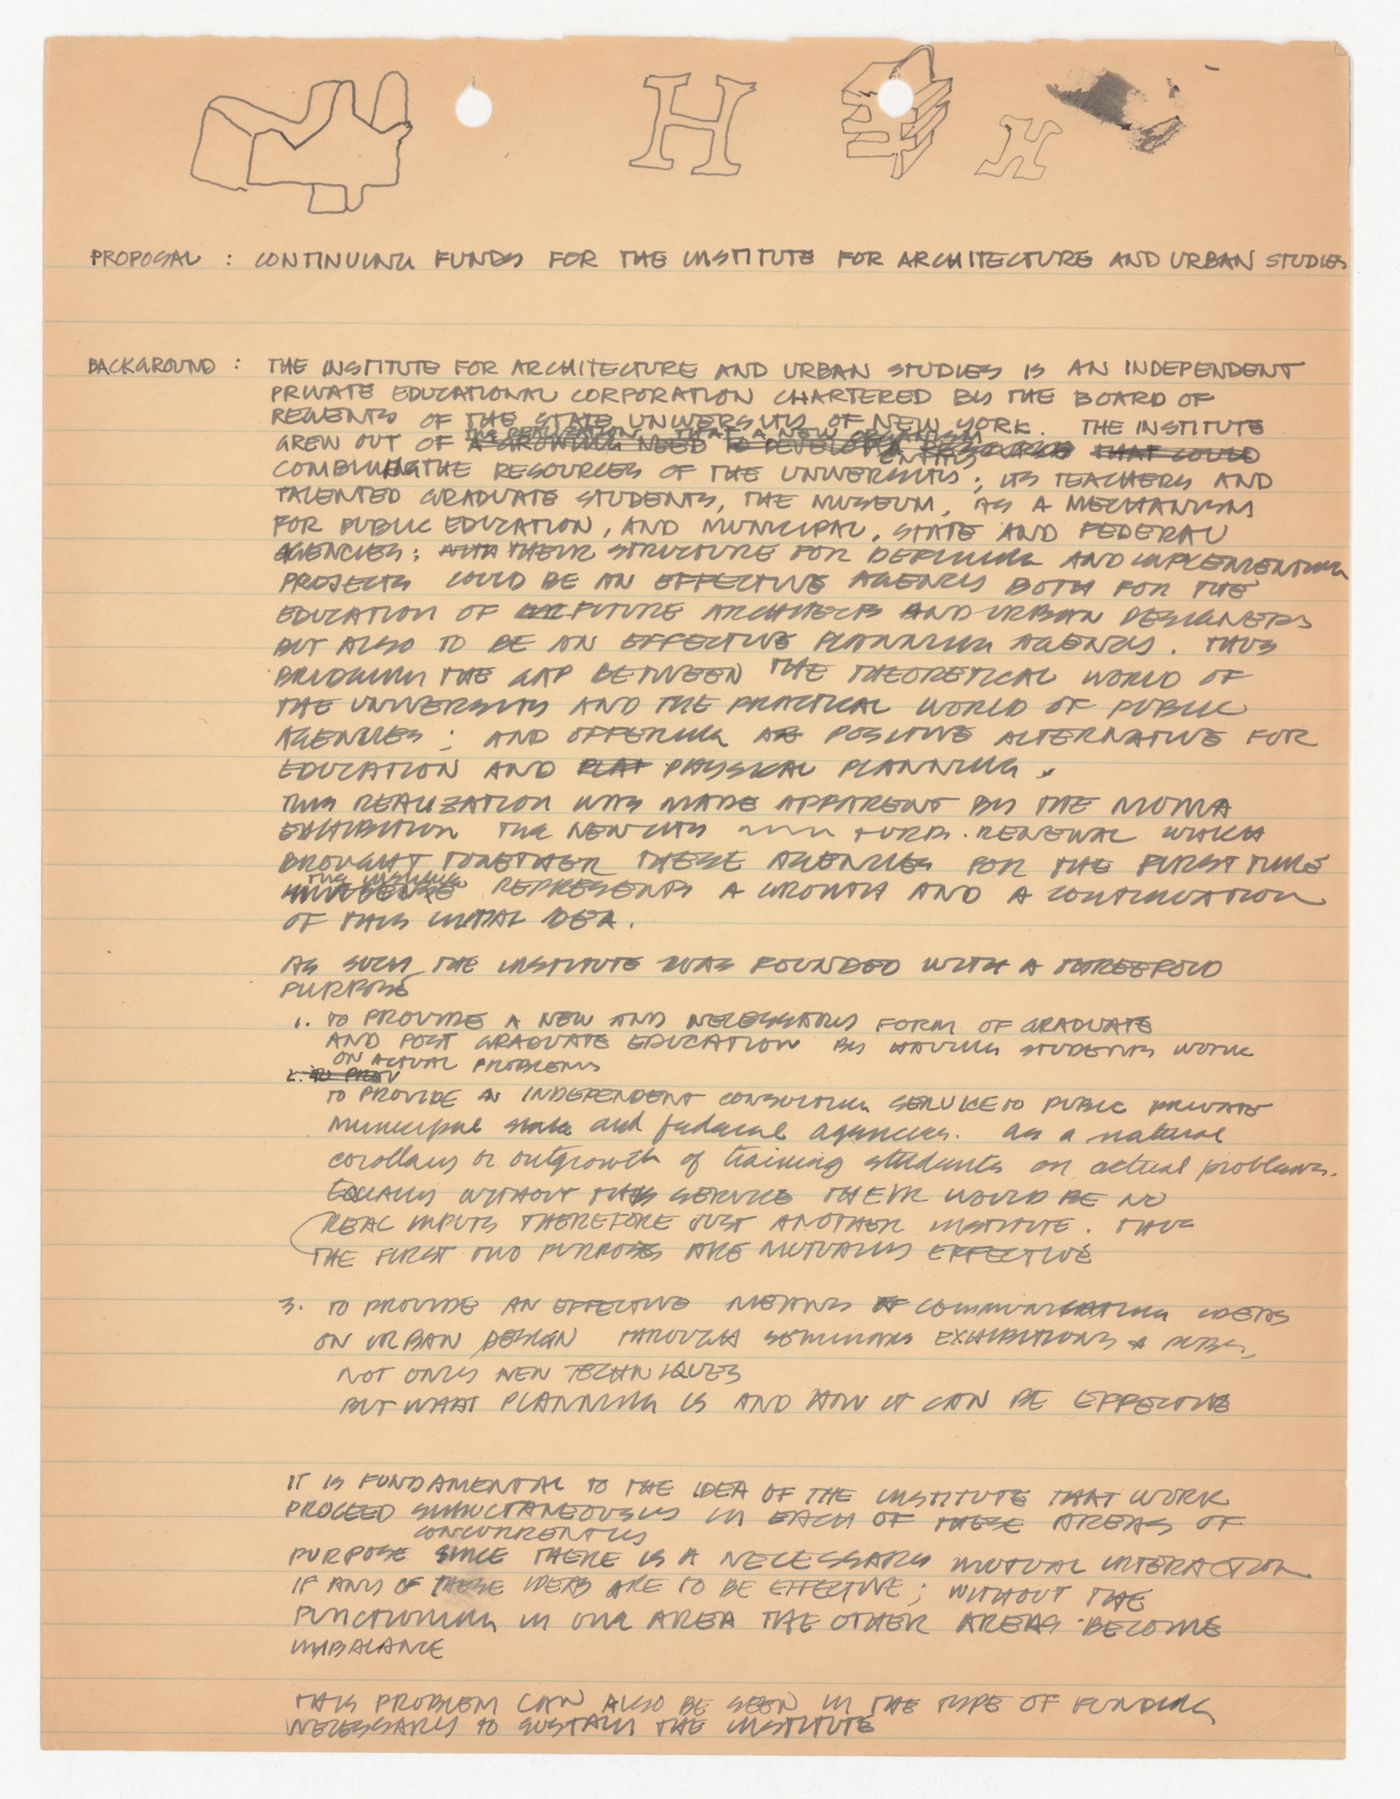 H H
PROPOSAL : CONTINUING FUNDS FOR THE INSTITUTE FOR ARCHITECTURE AND URBAN STUDIES
BACKGROUND : THE INSTITUTE FOR ARCHITECTURE AND URBAN STUDIES IS AN INDEPENDENT
PRIVATE EDUCATIONAL CORPORATION CHARTERED BY THE BOARD OF
REGENTS OF THE STATE UNIVERSITY OF NEW YORK. THE INSTITUTE
THE REALIZATION THAT A NEW ORGANISM
GREW OUT OF A GROWING NEED TO DEVELOP A RESOURCE THAT COULD
ENTITY
COMBINING THE RESOURCES OF THE UNIVERSITY; ITS TEACHERS AND
TALENTED GRADUATE STUDENTS, THE MUSEUM, AS A MECHANISM
FOR PUBLIC EDUCATION, AND MUNICIPAL, STATE AND FEDERAL
AGENCIES; WITH THEIR STRUCTURE FOR DEFINING AND IMPLEMENTING
PROJECTS COULD BE AN EFFECTIVE AGENCY BOTH FOR THE
EDUCATION OF FUTURE ARCHITECTS AND URBAN DESIGNERS
BUT ALSO TO BE AN EFFECTIVE PLANNING AGENCY. THUS
BRIDGING THE GAP BETWEEN THE THEORETICAL WORLD OF
THE UNIVERSITY AND THE PRACTICAL WORLD OF PUBLIC
AGENCIES; AND OFFERING A POSITIVE ALTERNATIVE FOR
EDUCATION AND PLAN PHYSICAL PLANNING.
THIS REALIZATION WAS MADE APPARENT BY THE MOMA
EXHIBITION THE NEW CITY + URB. RENEWAL WHICH
BROUGHT TOGETHER THESE AGENCIES FOR THE FIRST TIME
THE INSTITUTE
REPRESENTS A GROWTH AND A CONTINUATION
OF THIS INITIAL IDEA.
AS SUCH THE INSTITUTE WAS FOUNDED WITH A THREEFOLD
PURPOSE
1. TO PROVIDE A NEW AND NECESSARY FORM OF GRADUATE
AND POST GRADUATE EDUCATION BY HAVING STUDENTS WORK
ON ACTUAL PROBLEMS
2. TO PROV
TO PROVIDE AN INDEPENDENT CONSULTING SERVICE TO PUBLIC PRIVATE
municipal state and federal agencies. as a natural
corollary or outgrowth of training students on actual problems.
EQUALLY WITHOUT THIS SERVICE THEIR WOULD BE NO
REAL INPUTS THEREFORE JUST ANOTHER INSTITUTE. THUS
THE FIRST TWO PURPOSES ARE MUTUALLY EFFECTIVE
3. TO PROVIDE AN EFFECTIVE MEANS OF COMMUNICATING IDEAS
ON URBAN DESIGN THROUGH SEMINARS EXHIBITIONS & PUBS,
NOT ONLY NEW TECHNIQUES
BUT WHAT PLANNING IS AND HOW IT CAN BE EFFECTIVE
IT IS FUNDAMENTAL TO THE IDEA OF THE INSTITUTE THAT WORK
PROCEED SIMULTANEOUSLY IN EACH OF THESE AREAS OF
CONCURRENTLY
PURPOSE SINCE THERE IS A NECESSARY MUTUAL INTERACTION
IF ANY OF THESE IDEAS ARE TO BE EFFECTIVE; WITHOUT THE
FUNCTIONING IN ONE AREA THE OTHER AREAS BECOME
IMBALANCE
THIS PROBLEM CAN ALSO BE SEEN IN THE TYPE OF FUNDING
NECESSARY TO SUSTAIN THE INSTITUTE